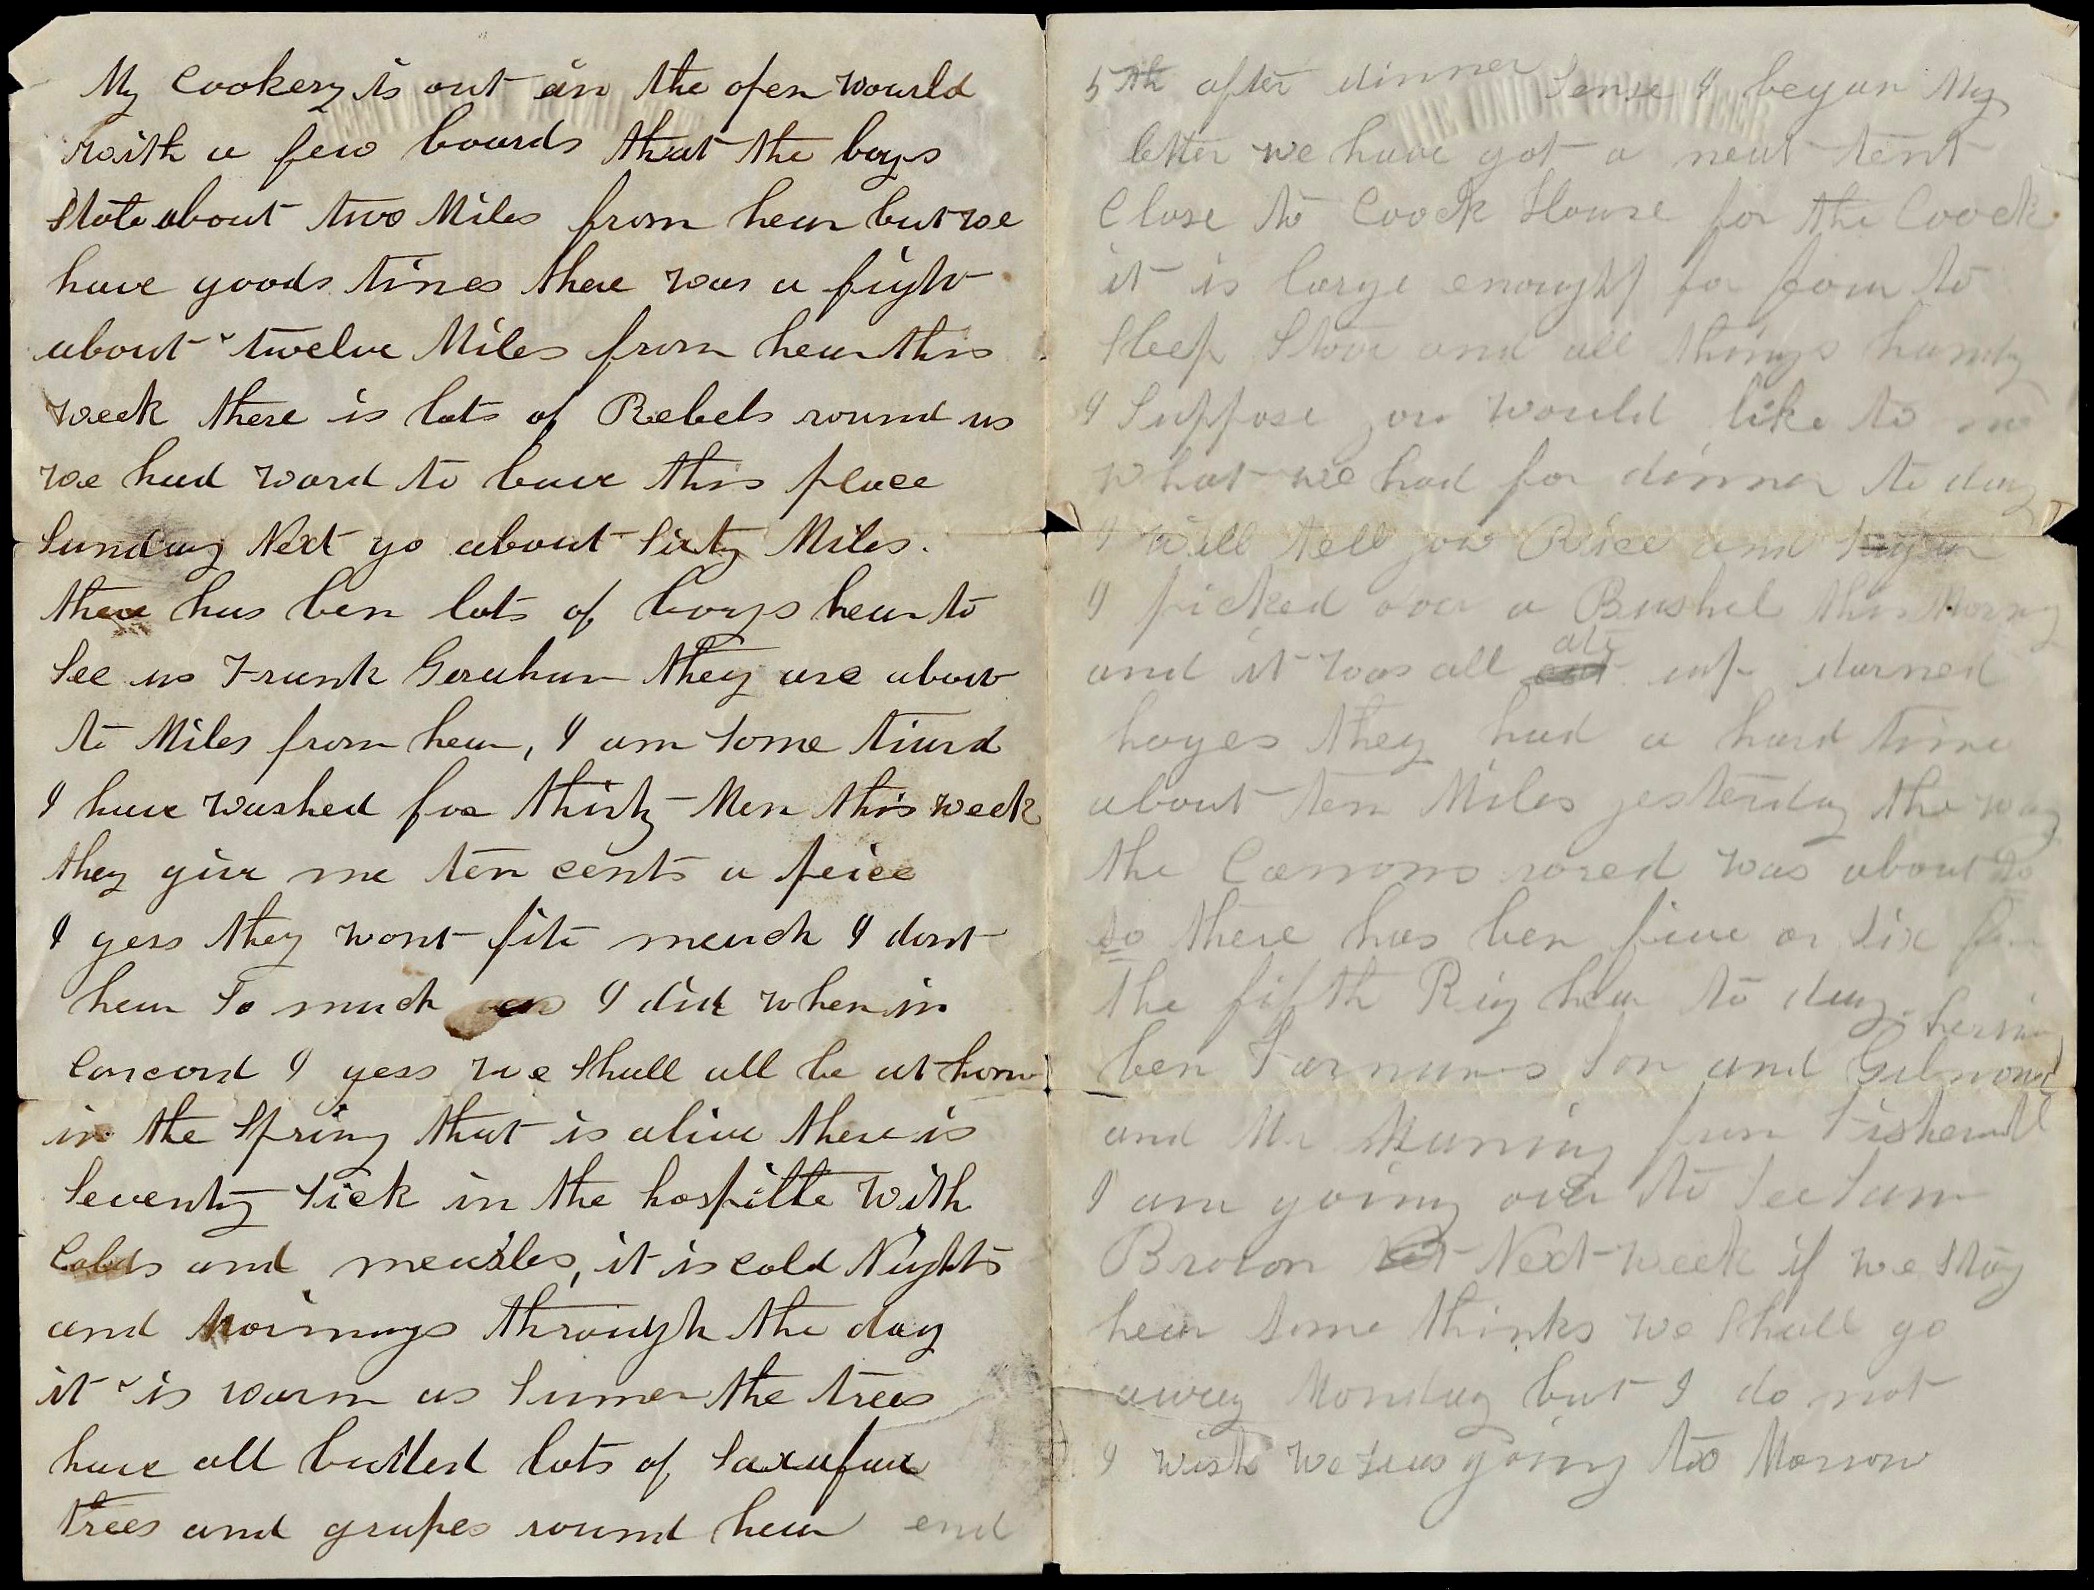 My Cookery is out in the open wourld
with a few bourds that the boys
Stole about two Miles from hear but we
have goods times there was a fight
about twelve Miles from hear this
week there is lots of Rebels round us
we had word to leave this place
Sunday Next go about Sixty Miles.
there has ben lots of boys hear to
See us Frank Gorahum they are about
to Miles from hear, I am Some tiurd
I have washed for thirty Men this week
they give me ten cents a peice
I gess they wont fite meuch I dont
hear So much as I did when in
Concord I gess we Shall all be at home
in the Spring that is alive there is
Seventy Sick in the hospitle with
Colds and measles, it is cold Nights
and Mornings through the day
it is warm as Sumer the trees
have all budded lots of Saxafax
trees and grapes round hear end
5th after dinner Sense I began My
letter we have got a neat tent
Close to Coock House for the Coock
it is large enought for four to
Sleep Stove and all things handy
I Suppose you would like to no
what we had for dinner to day
I will tell you Rice and
I picked over a Bushel this Morny
and it was all ate up darned
hoges they had a hard time
about ten Miles yesterday the way
the Cannons rored was about so
so there has ben five or six from
the fifth Rig hear to day.
ben Farnums Son and Gilmour
and Mr Maning from Fishervill
I am going over to See Sam
Brown Next week if we Stay
hear Some thinks we Shall go
away Monday but I do not
I wish we was going too Morrow